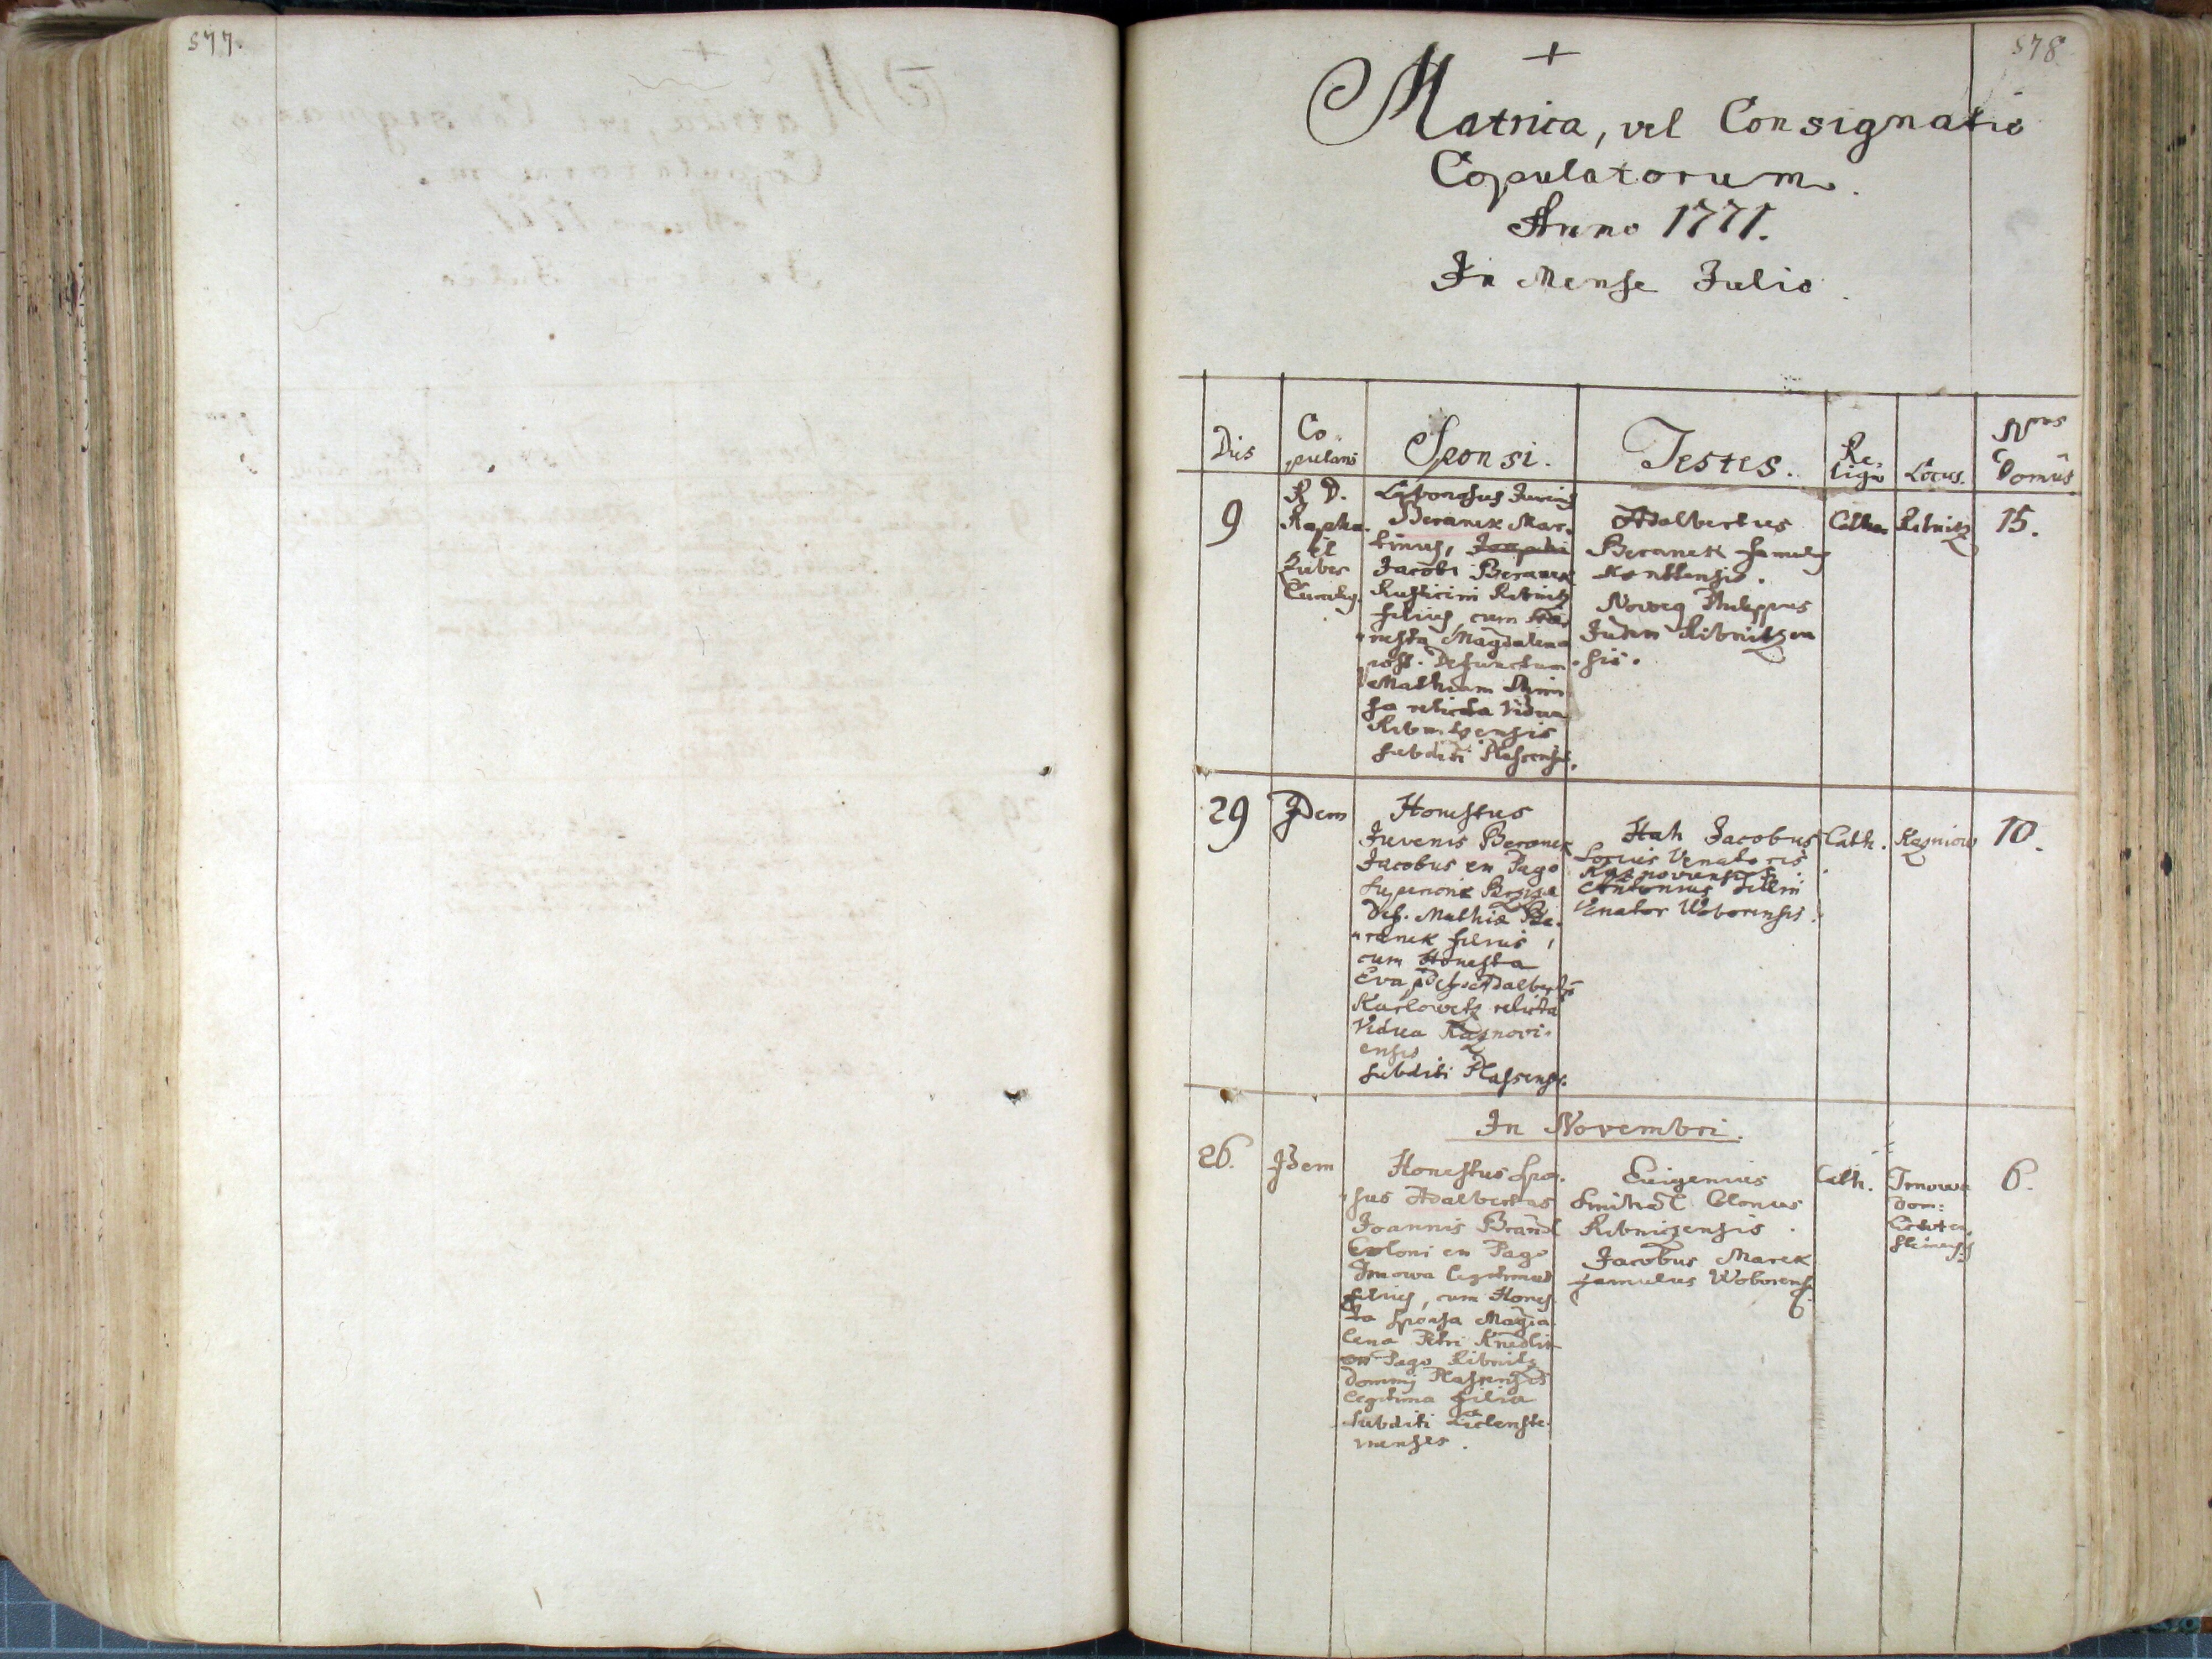 577.
578
+
Matrica, vel Consignatio
Copulatorum.
Anno 1771.
In Mense Julio.
Dies
Co
pulans
Sponsi.
Testes.
Re-
ligio
Locus.
Nrus
Domûs
9
R. D.
Rapha-
el
Huber
Juvenis
Beranek Mar-
tinus, Josephi
Jacobi Beranek
Rustici in Ribnitz
filius, cum Ho-
nesta Magdalena
post Defunctum
Mathiam
relicta Vidua
Ribnitzensis
subditi Plassenses.
Adalbertus
Beranek famulus
Noweg Philippus
Judex Ribnitzen
sis.
Catho.
Ribnitz
15.
29
Idem
Honestus
Juvenis Beranek
Jacobus ex Pago
Superiori
Def. Mathiæ Be-
ranek filius,
cum Honesta
Eva, Adalberti
Karlowetz relicta
Vidua Kaznovi-
ensis
subditi Plassenses.
Hah Jacobus
Socius Venatoris
Kaznoviensis
Antonius
Venator Woborensis.
Cath.
Kazniow
10.
In Novembri.
26.
Idem
Honestus Spon-
sus Adalbertus
Joannis Brandl
Coloni ex Pago
Trnowa legitimus
filius, cum Hones-
ta Sponsa Magda-
lena Petri Knedlik
ex Pago Ribnitz
Dominii Plassensis
legitima filia
subditi Lictenste-
inenses.
Euigenius
Smihal Colonus
Ribnizensis.
Jacobus Marek
famulus Woborensis.
Cath.
Trnowa
Dom:
Lichten
steinensis
6.